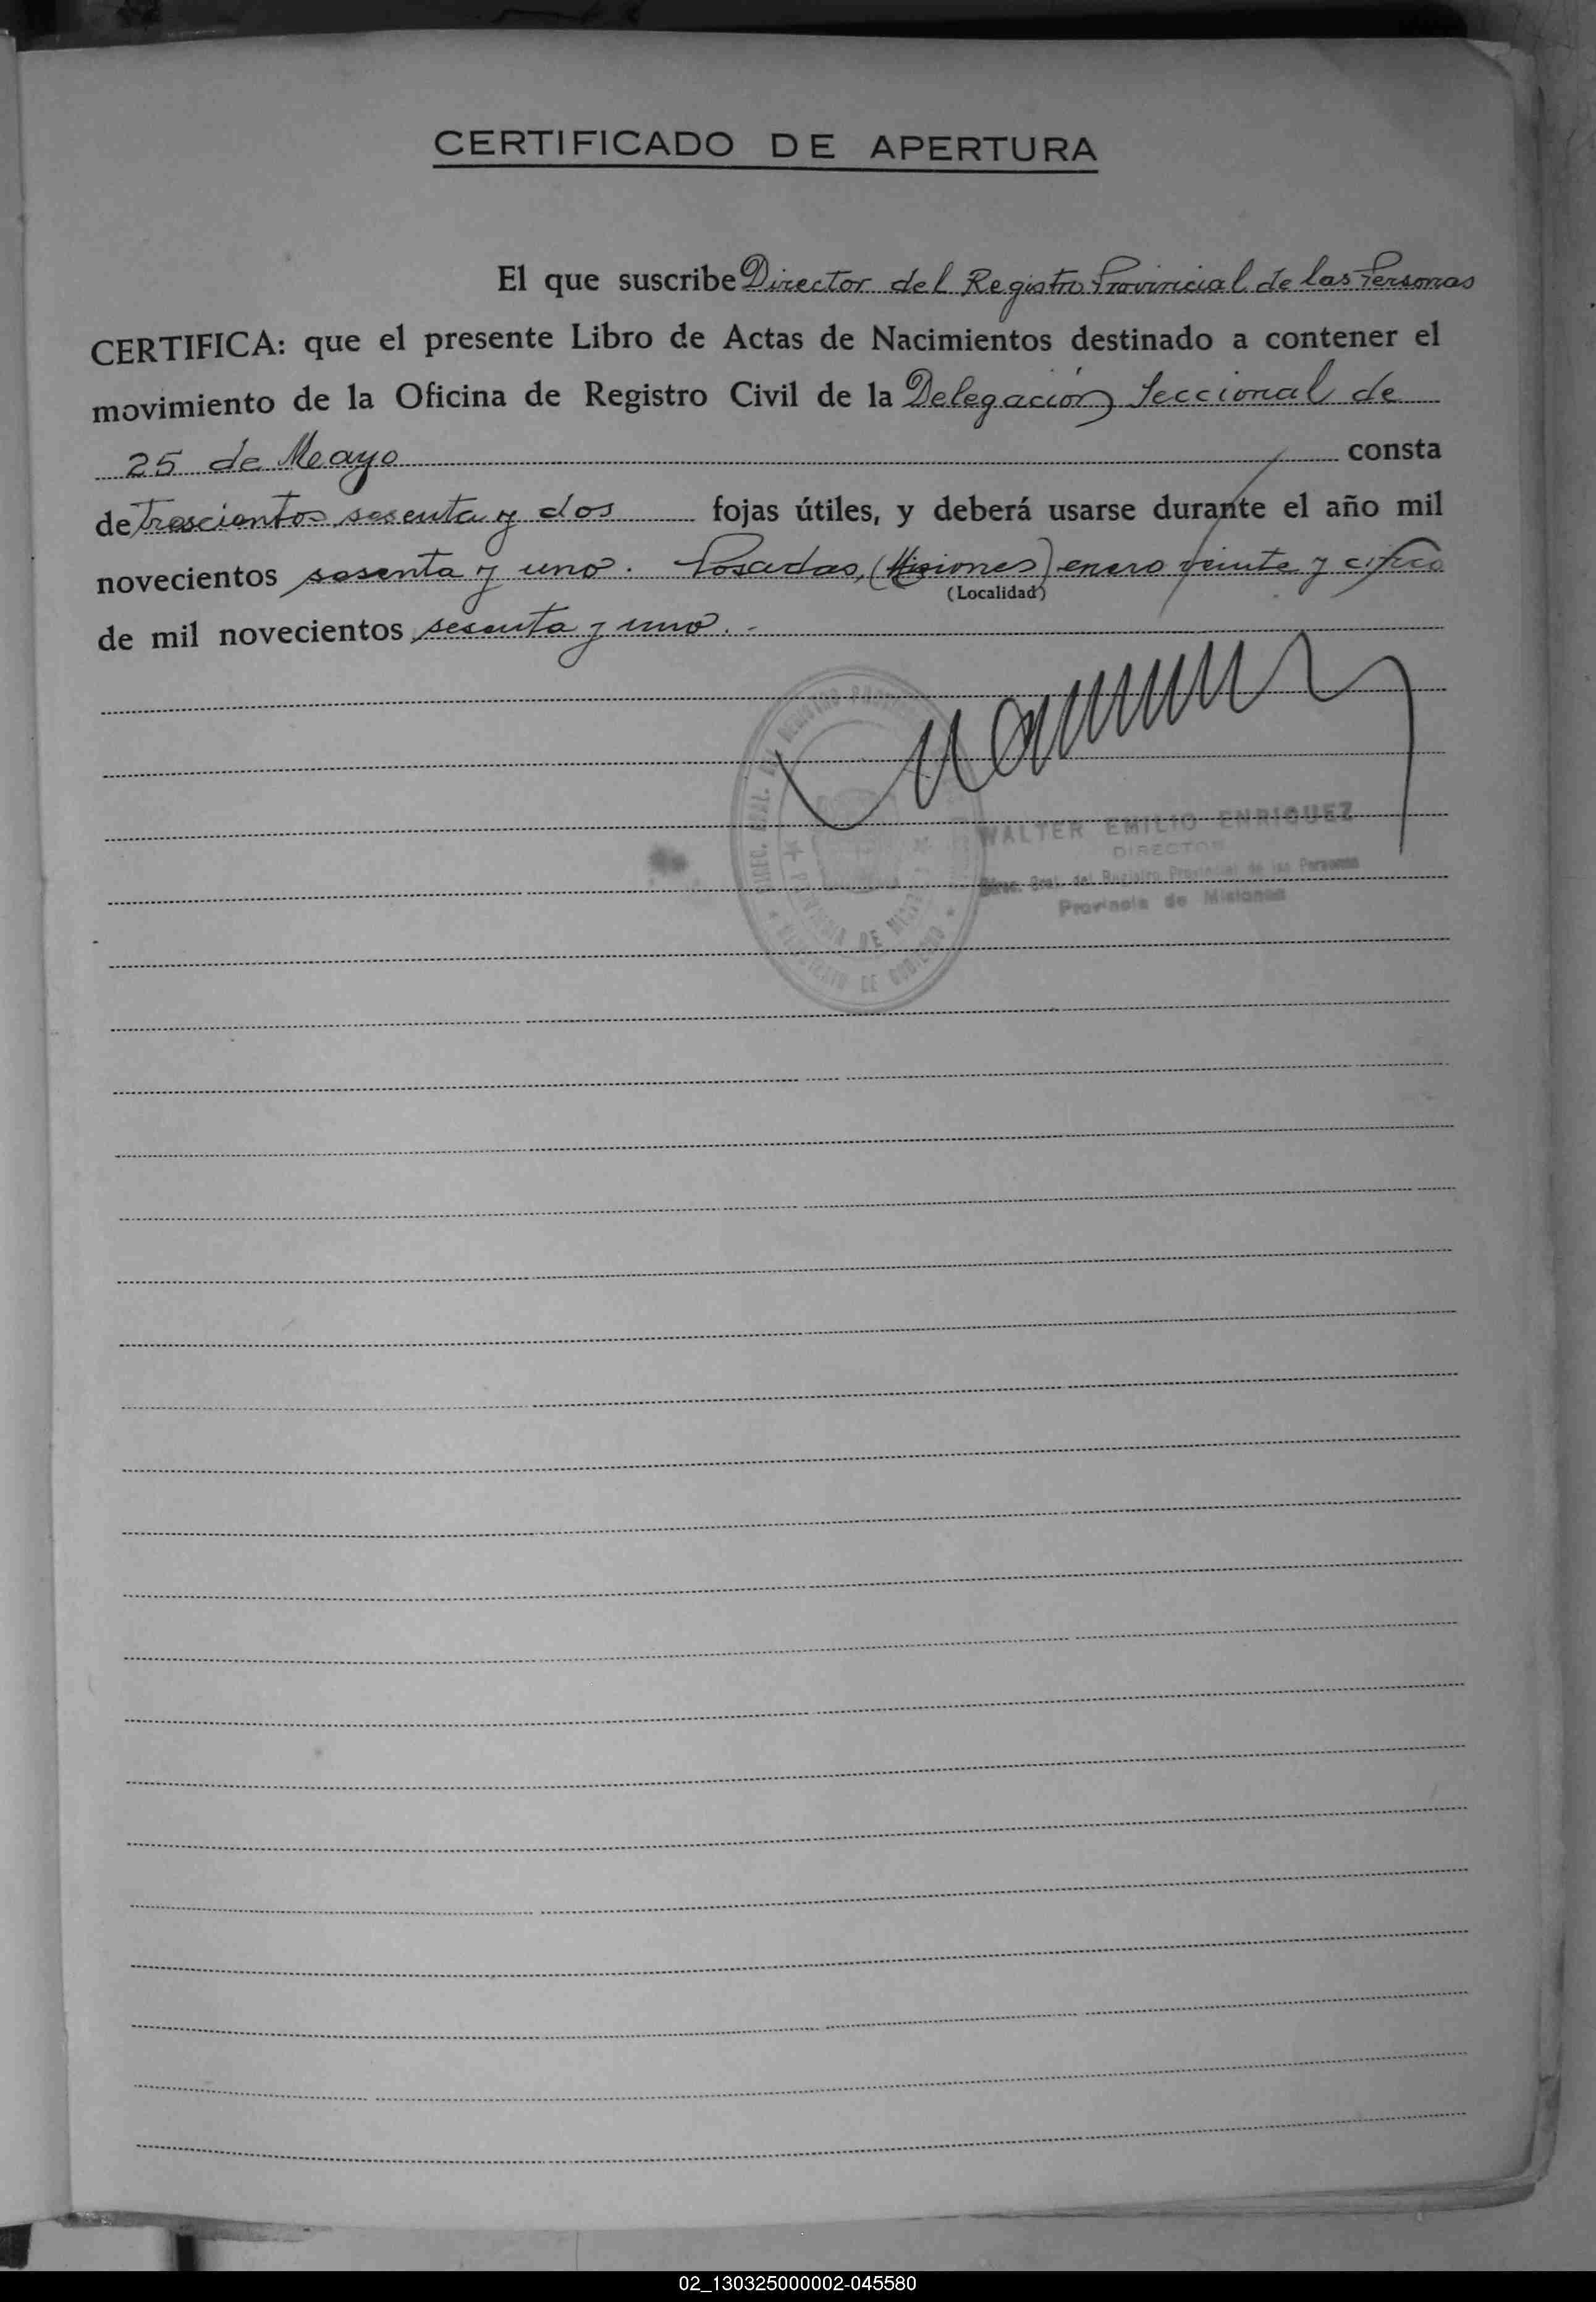 CERTIFICADO DE APERTURA
El que suscribe Director del Registro Provincial de las Personas
CERTIFICA: que el presente Libro de Actas de Nacimientos destinado a contener el
movimiento de la Oficina de Registro Civil de la Delegación Seccional de
25 de Mayo consta
de trescientos sesenta y dos fojas útiles, y deberá usarse durante el año mil
novecientos sesenta y uno. Posadas, (Misiones) enero veinte y cinco
(Localidad)
de mil novecientos sesenta y uno. -
WALTER EMILIO ENRIQUEZ
DIRECTOR
Direc. Gral. del Registro Provincial de las Personas
Provincia de Misiones
02_130325000002-045580